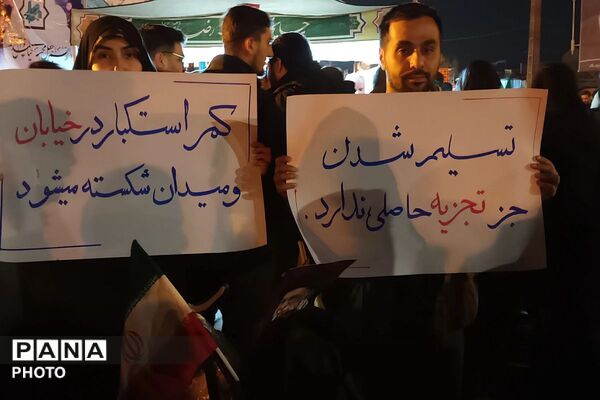 کمر استکبار در خیابان
و میدان شکسته میشود
تسلیم شدن
جز تجزیه حاصلی ندارد.
PANA
PHOTO